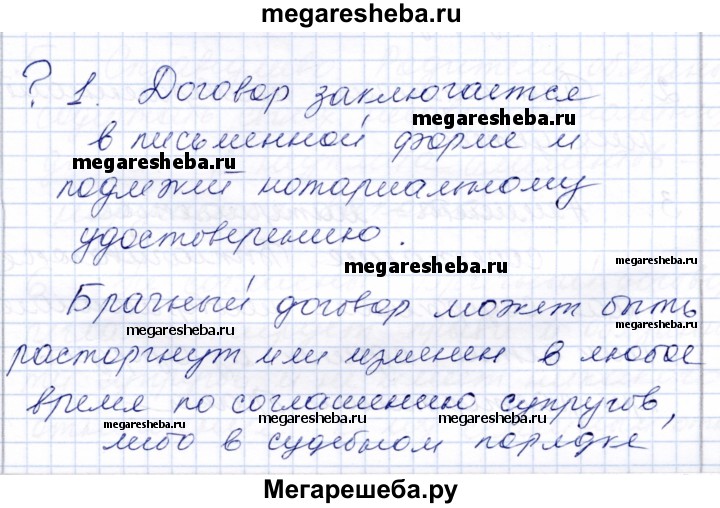 megaresheba.ru
? 1. Договор заключается
в письменной форме и
megaresheba.ru
megaresheba.ru
подлежий нотариальному
удостоверению.
megaresheba.ru
megaresheba.ru
Брачный договор может быть
megaresheba.ru
megaresheba.ru
расторгнут или изменен в любое
время по соглашению супругов,
megaresheba.ru
megaresheba.ru
либо в судебном порядке
Мегарешеба.ру